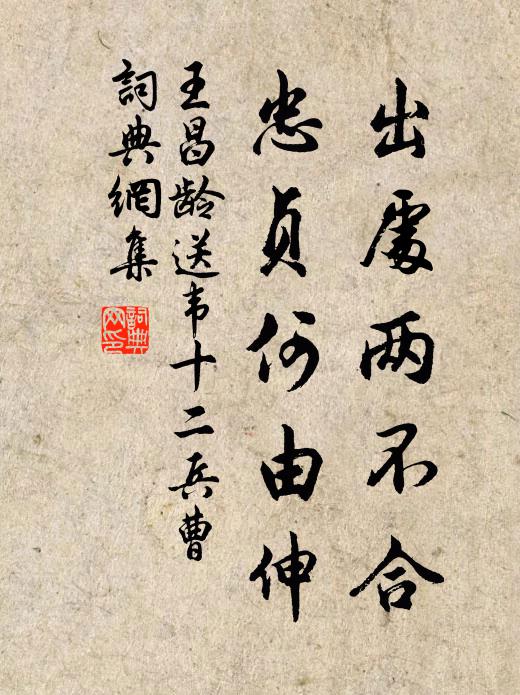 出處两不合
忠貞何由伸
王昌龄送韦十二兵曹
詞典網集
詞典网印